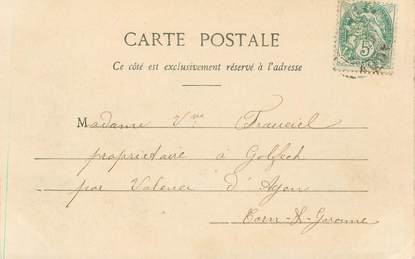 CARTE POSTALE
Ce côté est exclusivement réservé à l'adresse
Madame Vve
propriétaire à Golfech
par Valence d'Agen
Tarn-&-Garonne
5